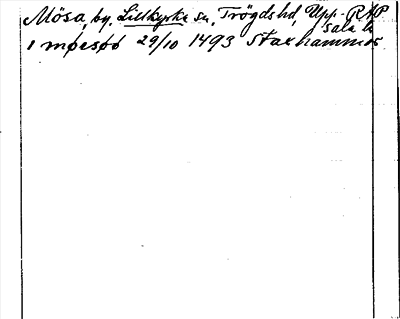 Mösa, by. Lillkyrka sn, Trögds hd, Upp- RAP
sala l.
i møesøø 29/10 1493 Stax hammer